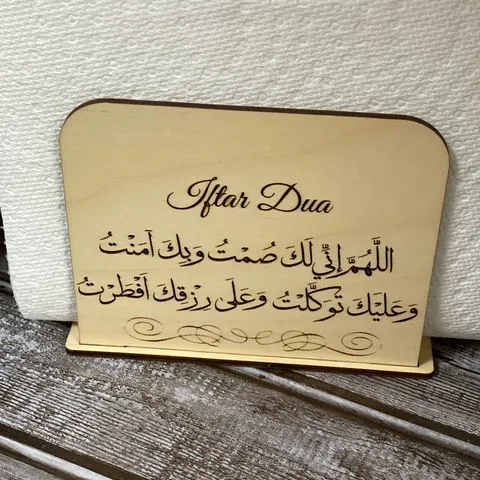 Iftar Dua
اللَّهُمَّ إِنِّي لَكَ صُمْتُ وَبِكَ آمَنْتُ
وَعَلَيْكَ تَوَكَّلْتُ وَعَلَى رِزْقِكَ اَفْطَرْتُ